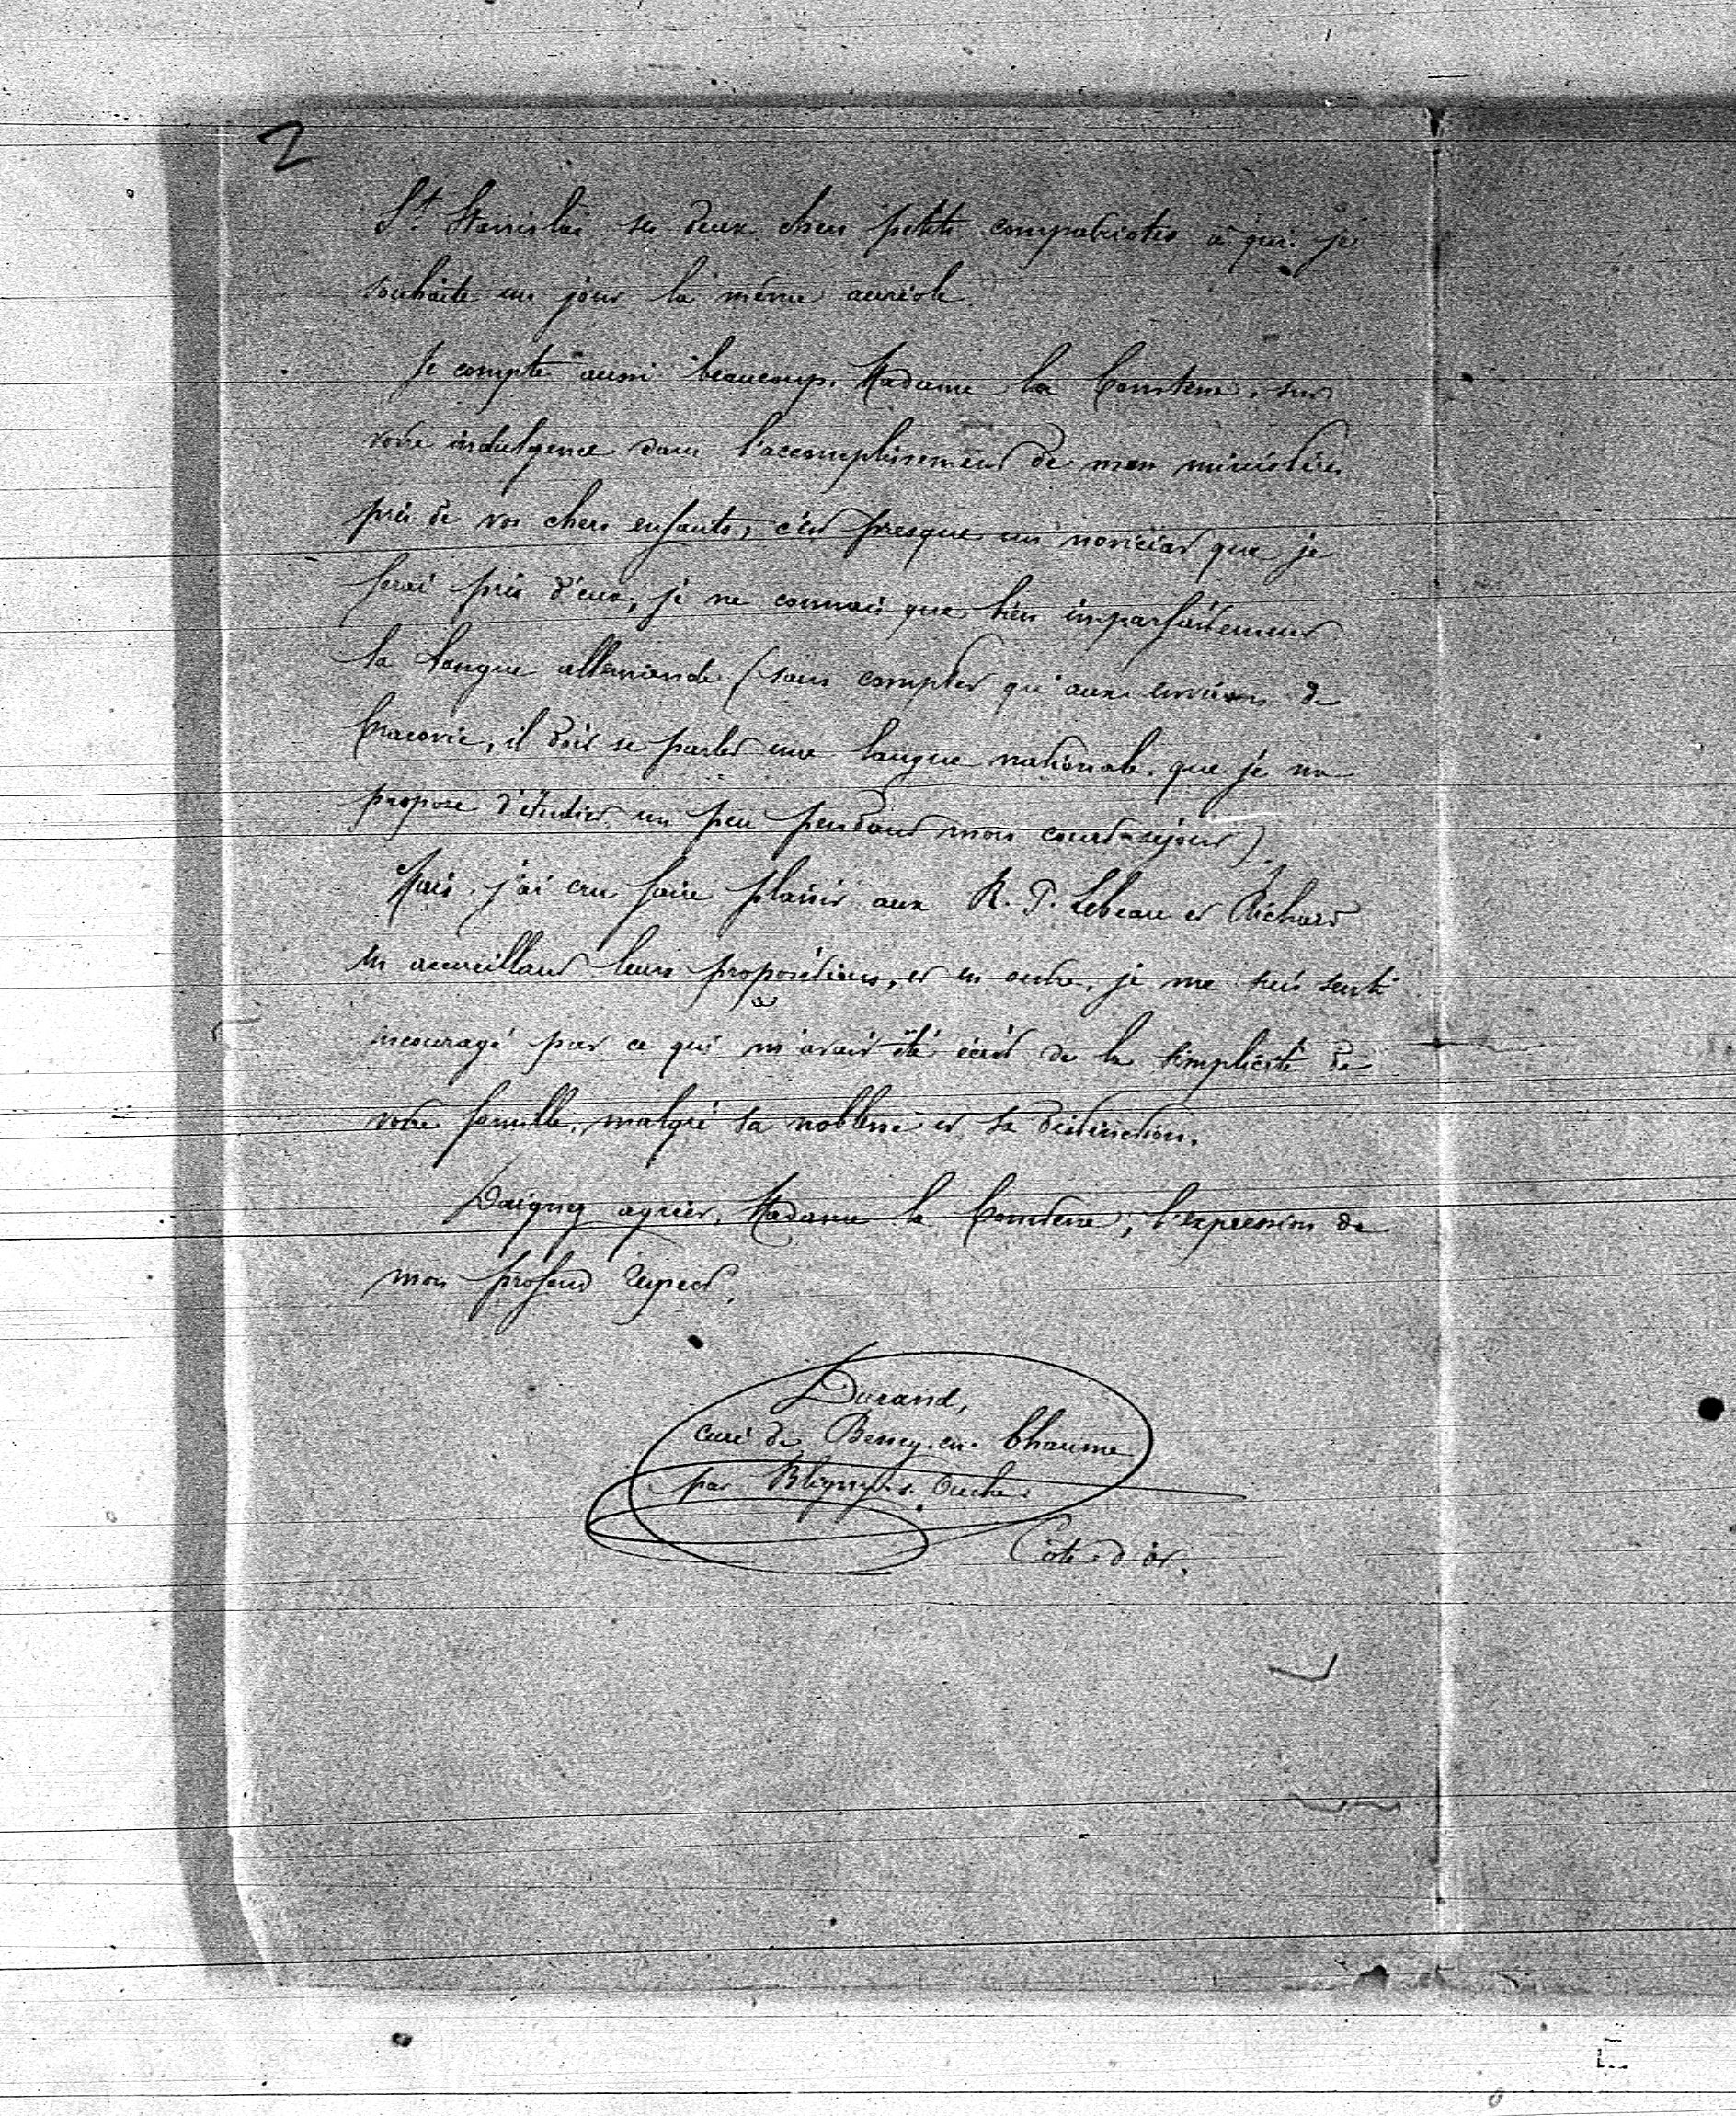 2
St. Stanislas ses deux chers petits compatriotes à qui je
souhaite un jour la même auréole.
Je compte aussi beaucoup, Madame la Comtesse, sur
votre indulgence dans l'accomplissement de mon ministère
près de vos chers enfants; c'est presque un noviciat que je
ferai près d'eux, je ne connais que bien imparfaitement
la langue allemande (sans compter qu'aux environs de
Cracovie, il doit se parler une langue nationale que je me
propose d'étudier un peu pendant mon court séjour).
Mais j'ai cru faire plaisir aux R. P. Lebeau et Richard
en accueillant leurs propositions, et en outre, je me suis senti
encouragé par ce qui m'avait été écrit de la simplicité de
votre famille, malgré sa noblesse et sa distinction.
Daignez agréer, Madame la Comtesse, l'expression de
mon profond respect.
Durand,
curé de Bessey-en-Chaume
par Bligny-s-Ouche.
Côte-d'or.